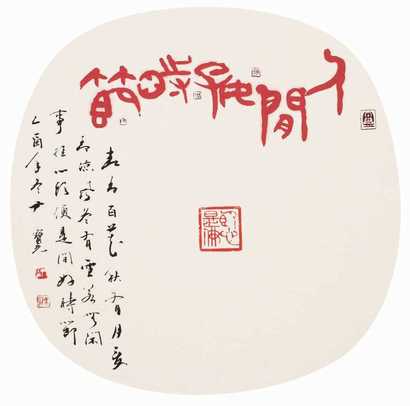 人間好時節
春有百花秋有月夏
有涼風冬有雪若無閑
事挂心頭便是間好時節
乙酉年冬尹